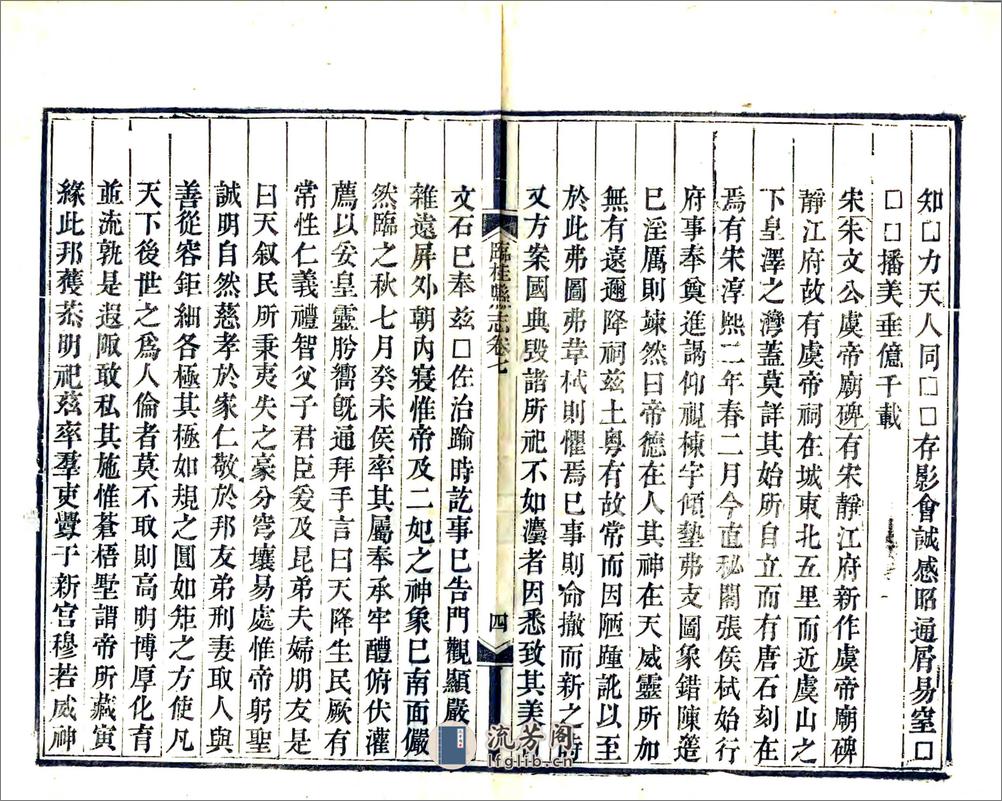 知□力天人同□□存影會誠感昭通屑易窒□
□□播美垂億千載
宋朱文公虞帝廟碑有宋靜江府新作虞帝廟碑
靜江府故有虞帝祠在城東北五里而近虞山之
下皇澤之灣蓋莫詳其始所自立而有唐石刻在
焉有宋淳熙二年春二月今直秘閣張侯栻始行
府事奉奠進謁仰視棟宇傾墊弗支圖象錯陳簉
已淫厲則竦然曰帝德在人其神在天威靈所加
無有遠邇降祠茲土粵有故常而因陋踵訛以至
於此弗圖弗葺栻則懼焉已事則命撤而新之時
又方案國典毀諸所祀不如灋者因悉致其美
臨桂縣志卷七
四
文石已奉茲□佐治踰時訖事已告門觀顯嚴
雜遠屏外朝內寢惟帝及二妃之神象已南面儼
然臨之秋七月癸未侯率其屬奉承牢醴俯伏灌
薦以妥皇靈肹蠁旣通拜手言曰天降生民厥有
常性仁義禮智父子君臣爰及昆弟夫婦朋友是
曰天叙民所秉夷失之豪分穹壤易處惟帝躬聖
誠明自然慈孝於家仁敬於邦友弟刑妻取人與
善從容鉅細各極其極如規之圓如矩之方使凡
天下後世之爲人倫者莫不取則高明博厚化育
並流孰是遐陬敢私其施惟蒼梧墅謂帝所藏寅
緣此邦獲恭明祀茲率羣吏釁于新宮穆若威神
流芳阁
lfglib.cn